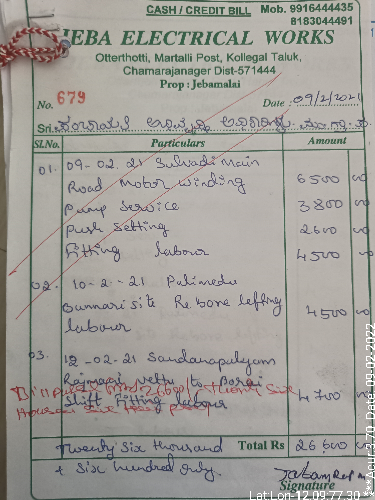 CASH / CREDIT BILL Mob. 9916444435
8183044491
JEBA ELECTRICAL WORKS
Otterthotti, Martalli Post, Kollegal Taluk,
Chamarajanager Dist-571444
Prop : Jebamalai
No. 679 Date : 09/2/2021
Sri.
Sl.No. Particulars Amount
01. 09-02-21 Sulvadi main
Road motor winding 6500
Pump Service 3800
Push Setting 2600
Fitting labour 4500
02. 10-2-21 Palimedu
Bunnari site Re bore lefting 4500
labour
03. 12-02-21 Sandanapalyam
shift Fitting labour 4700
Twenty Six thousand Total Rs 26,600
& Six hundred only.
Signature
Lat:Lon-12.09:77.30 ***Acur:3.70 Date:09-02-2022